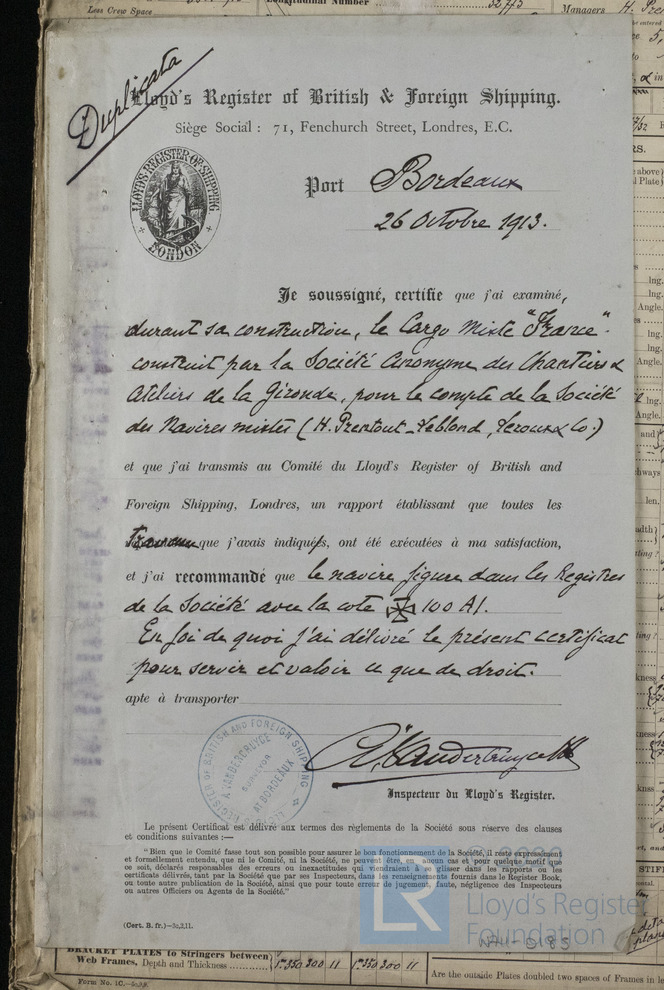 Less Crew Space
Longitudinal Number
32773
Managers H. Pre
Duplicata
Lloyd's Register of British & Foreign Shipping.
Siège Social : 71, Fenchurch Street, Londres, E.C.
LLOYD'S REGISTER OF SHIPPING
LONDON
Port Bordeaux
26 Octobre 1913.
Je soussigné, certifie que j'ai examiné,
durant sa construction, le Cargo Mixte "France"
construit par la Société Anonyme des Chantiers &
Ateliers de la Gironde, pour le compte de la Société
des Navires mixtes (H. Prentout-Leblond, Leroux & Co.)
et que j'ai transmis au Comité du Lloyd's Register of British and
Foreign Shipping, Londres, un rapport établissant que toutes les
que j'avais indiqués, ont été exécutées à ma satisfaction,
et j'ai recommandé que le navire figure dans les Registres
de la Société avec la cote ✠ 100 A1.
En foi de quoi j'ai délivré le présent certificat
pour servir et valoir ce que de droit.
apte à transporter
REGISTER OF BRITISH AND FOREIGN SHIPPING
SURVEYOR
AT BORDEAUX
Inspecteur du Lloyd's Register.
Le présent Certificat est délivré aux termes des règlements de la Société sous réserve des clauses
et conditions suivantes :—
"Bien que le Comité fasse tout son possible pour assurer le bon fonctionnement de la Société, il reste expressément
et formellement entendu, que ni le Comité, ni la Société, ne peuvent en aucun cas et pour quelque motif que
ce soit, être déclarés responsables des erreurs ou inexactitudes qui viendraient à se glisser dans les rapports ou les
certificats délivrés, tant par la Société que par ses Inspecteurs, dans les renseignements fournis dans le Register Book,
ou toute autre publication de la Société, ainsi que pour toute erreur de jugement, faute, négligence des Inspecteurs
ou autres Officiers ou Agents de la Société."
(Cert. B. fr.)—5c,2,11.
LR
Lloyd's Register
Foundation
BRACKET PLATES to Stringers between
Web Frames, Depth and Thickness
Form No. 1C.
Are the outside Plates doubled two spaces of Frames in le